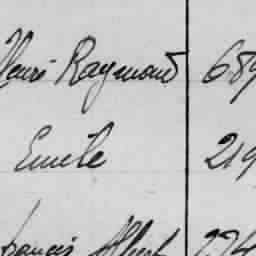 Henri Raymond 689
Emile 219
Francis Albert 224